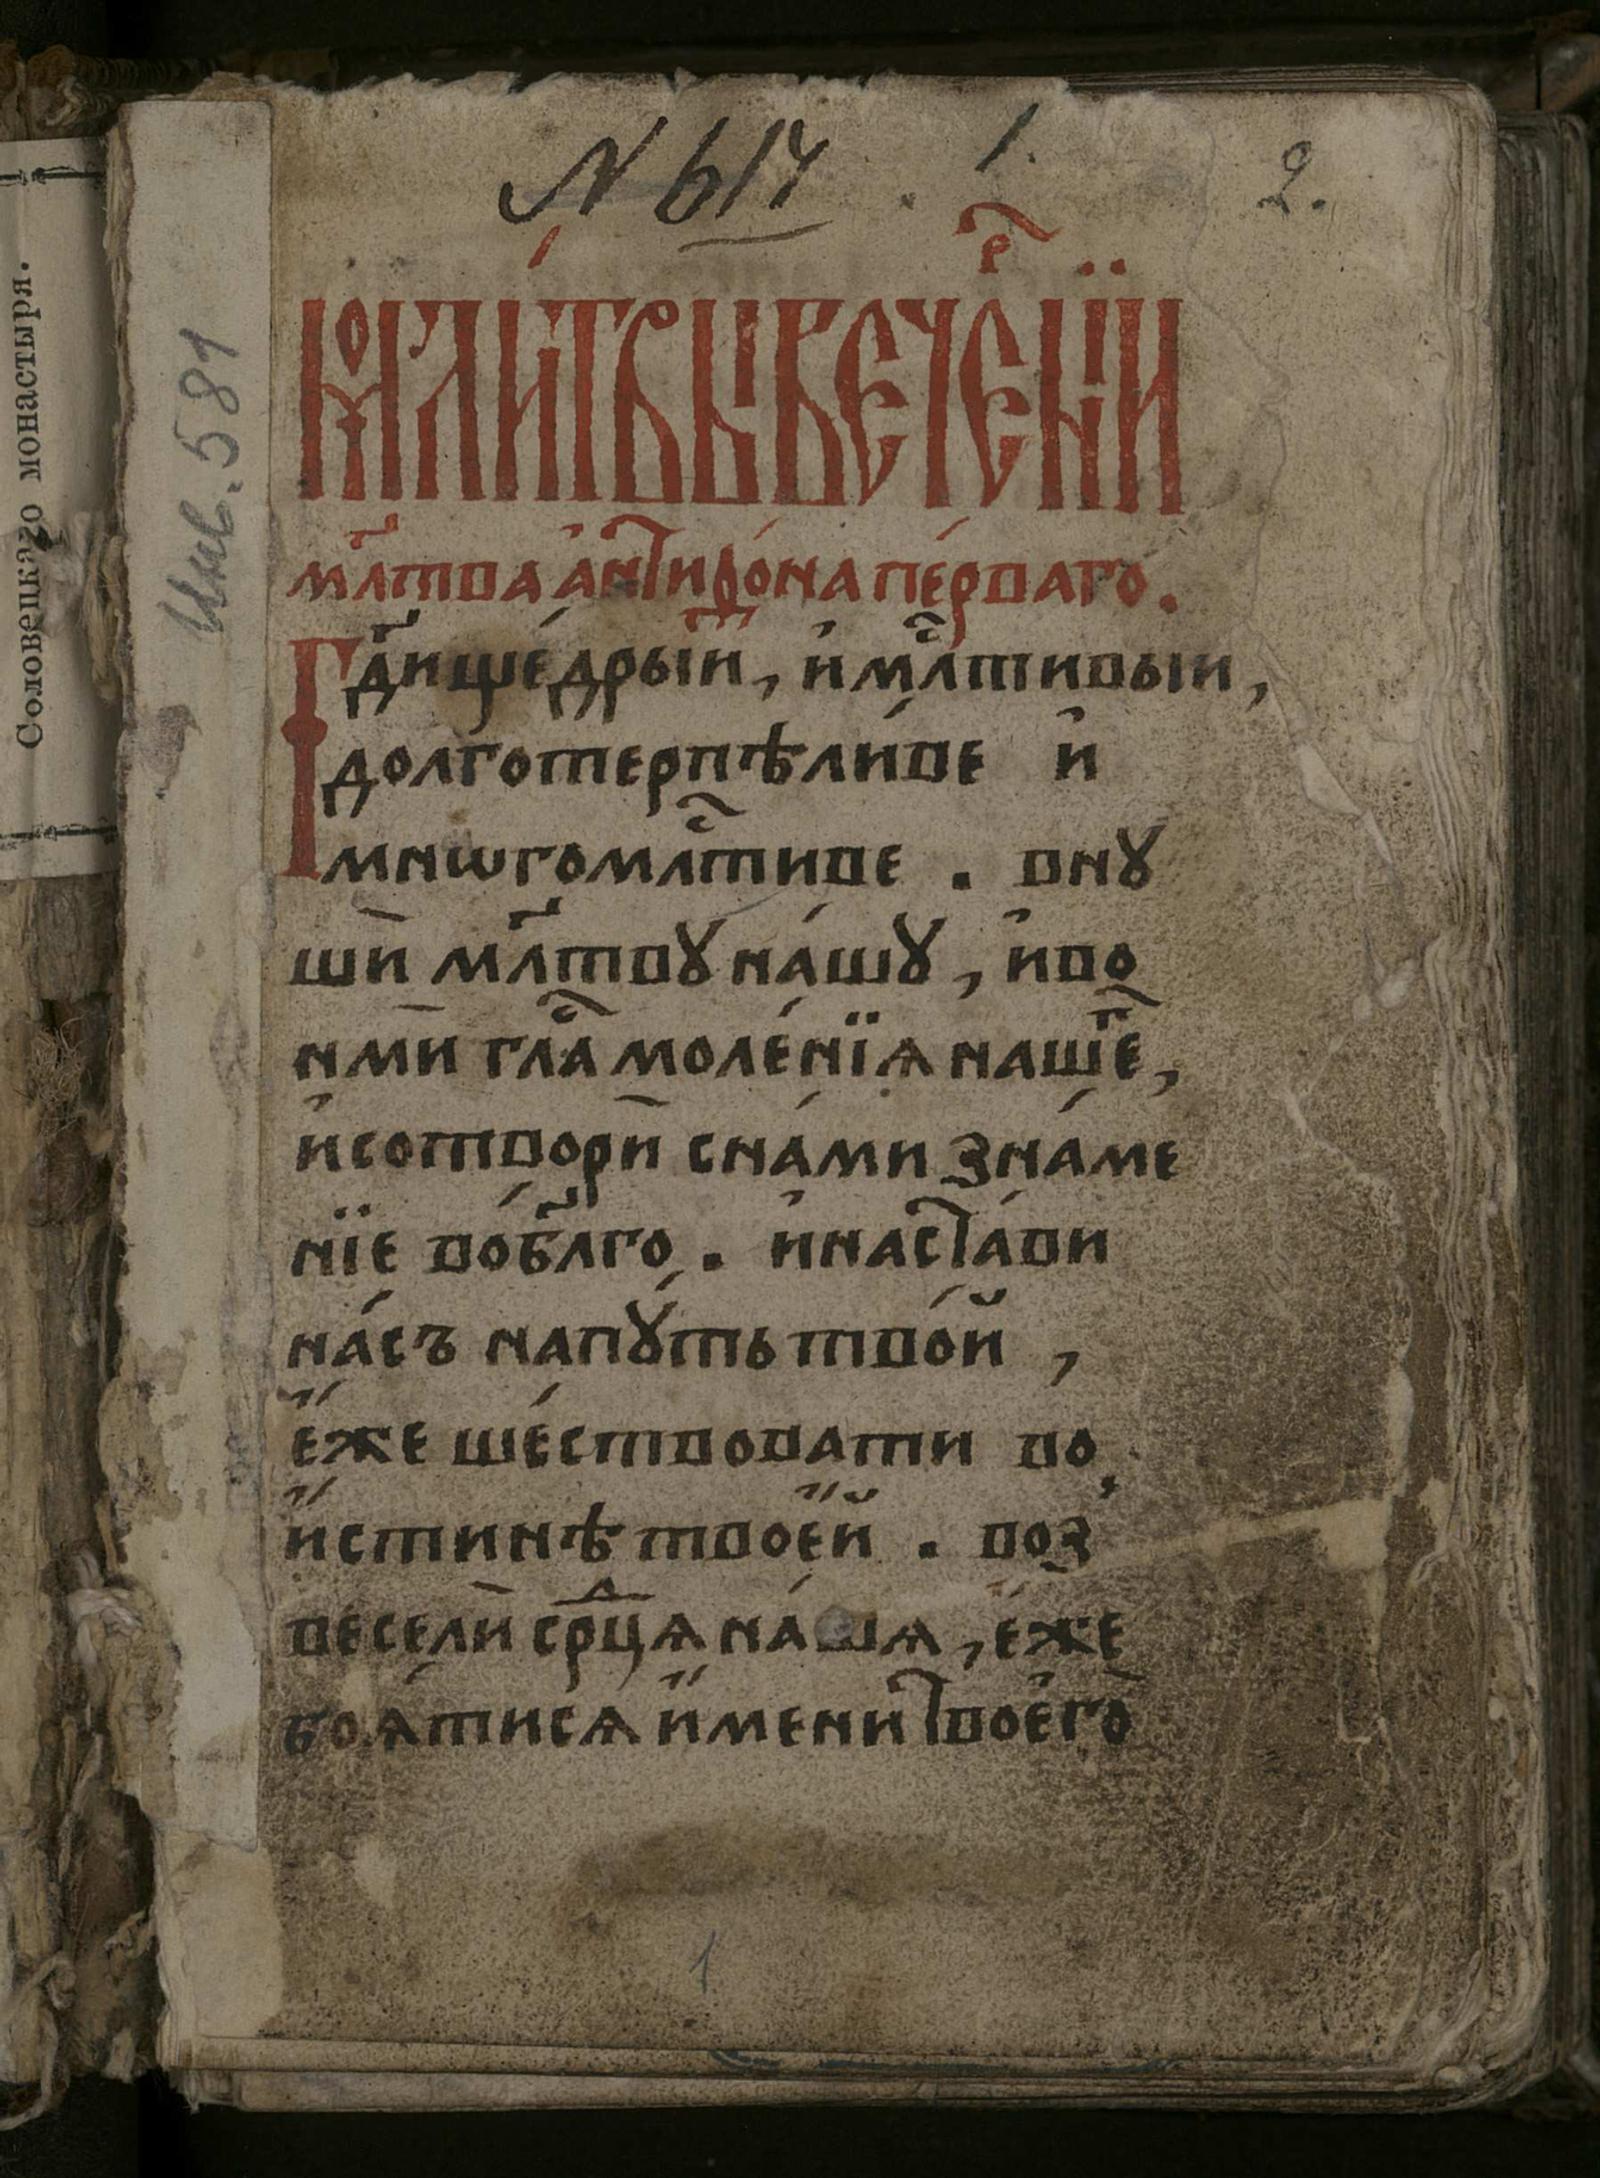 № 614 . 1. 2.
Соловецкаго монастыря.
Инв. 581
Мл҃тва антифо́на пе́рваго.
Гд҃и ще́дрыи, и҆ млⷭ҇тивыи,
долготерпѣли́ве и҆
мнѡгомлⷭ҇тиве . внꙋ
шѝ мл҃твꙋ на́шꙋ , и҆во
нмѝ глаⷭ҇ моле́нїѧ нашеⷢ҇,
и҆сотворѝ сна́ми зна́ме
нїе во́бл҃го . и҆наста́ви
на́съ напꙋ́ть тво́й ,
е҆́же ше́ствовати во
и҆́стинѣ твое҆́й . воз
веселѝ срⷣцѧ на́шѧ , е҆́же
боѧ́тисѧ и҆́мени твоегѡ̀
1